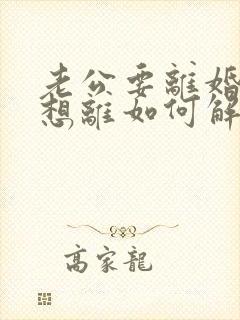 老公要離婚
想離如何解
高家龍